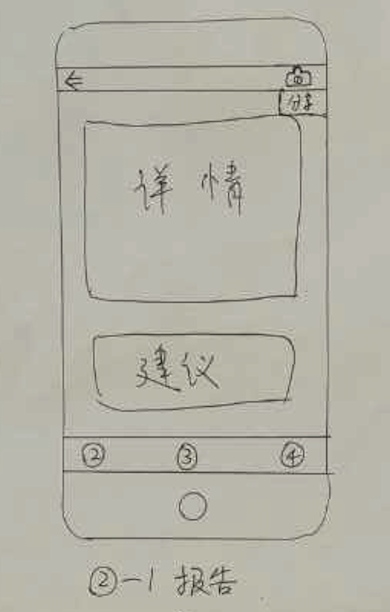 分享
详情
建议
② ③ ④
②-1 报告